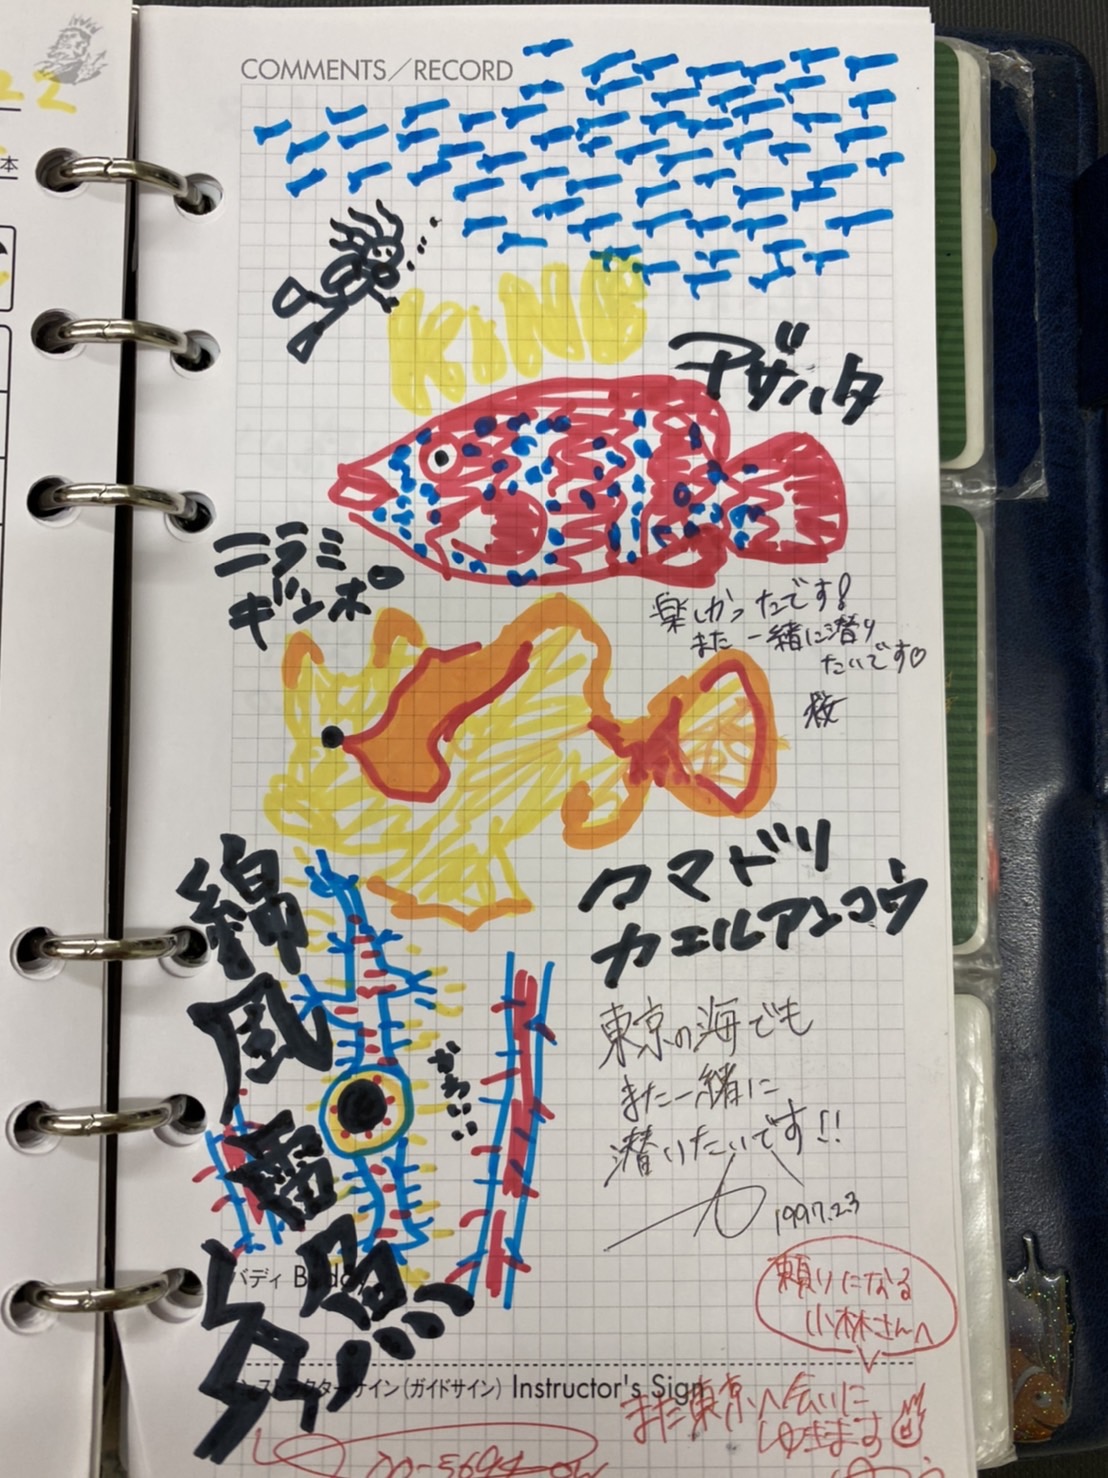 22
本
COMMENTS／RECORD
KING
アザハタ
ニラミ
ギンポ
楽しかったです！
また一緒に潜り
たいです♡
桜
クマドリ
カエルアンコウ
綿
風
かわいい
東京の海でも
また一緒に
潜りたいです!!
1997.23
バディ Buddy
頼りになる
小林さんへ
インストラクターサイン（ガイドサイン） Instructor's Sign
また東京へ会いに
ゆきます